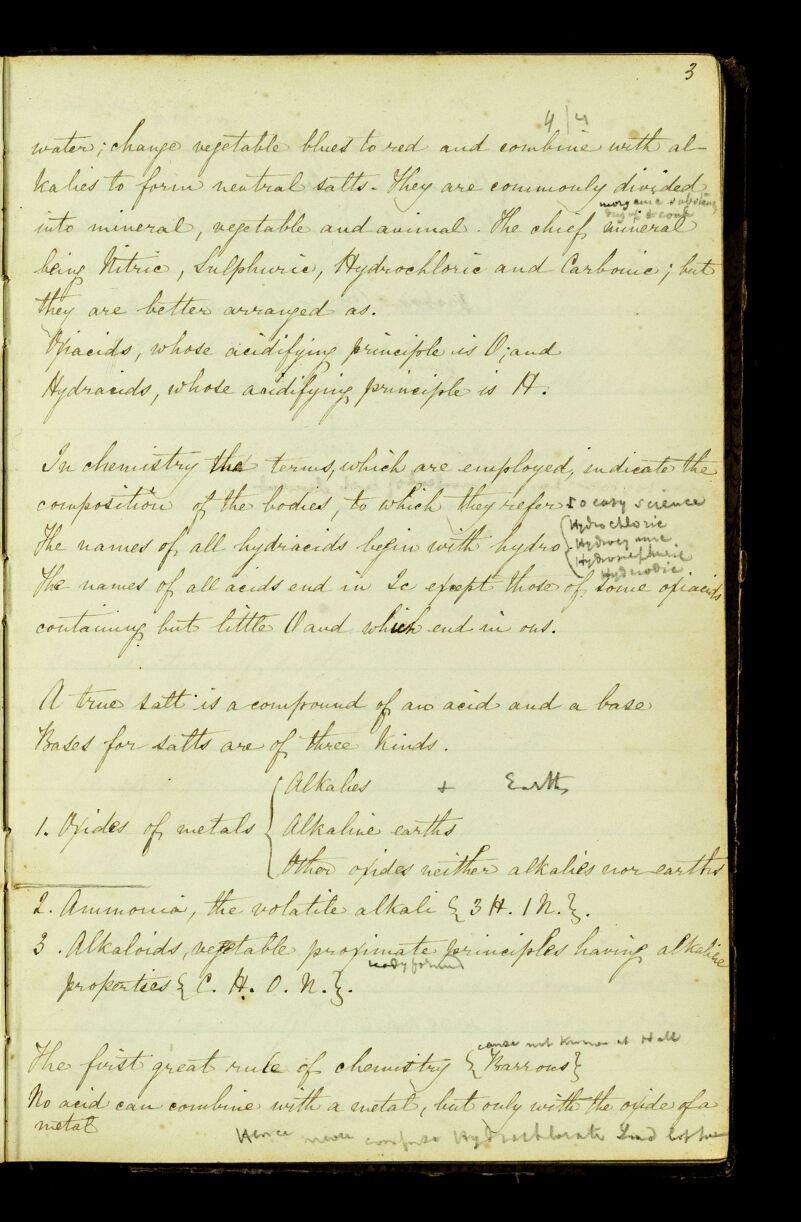 3
4/4
water; change vegetable blues to red and combine with al-
kalies to form neutral salts. They are commonly divided
into mineral, vegetable and animal. The chief mineral
being Nitric, Sulphuric, Hydrochloric and Carbonic; but
they are better arranged as.
Oxiacids, whose acidifying principle is O; and
Hydracids, whose acidifying principle is H.
In chemistry the terms, which are employed, indicate the
composition of the bodies, to which they refer so easy science
The names of all hydriacids begin with hydro
Hydrochloric
Hydrocyanic
Hydrosulphuric
Hydriodic
The names of all acids end in Ic except those of some oxiacids
containing but little O and which end in ous.
A true salt is a compound of an acid and a base
Bases for salts are of three kinds.
1. Oxides of metals { Alkalies + Earth
Alkaline earths
Other oxides neither alkalies nor earths
2. Ammonia, the volatile alkali { 3 H. 1 N. }.
3. Alkaloids, vegetable proximate principles having alkaline
ready formed
properties { C. H. O. N. }.
cause not known at Hall
The first great rule of chemistry { Barrows }
No acid can combine with a metal, but only with the oxide of a
metal
Hence never Hydrochlorate